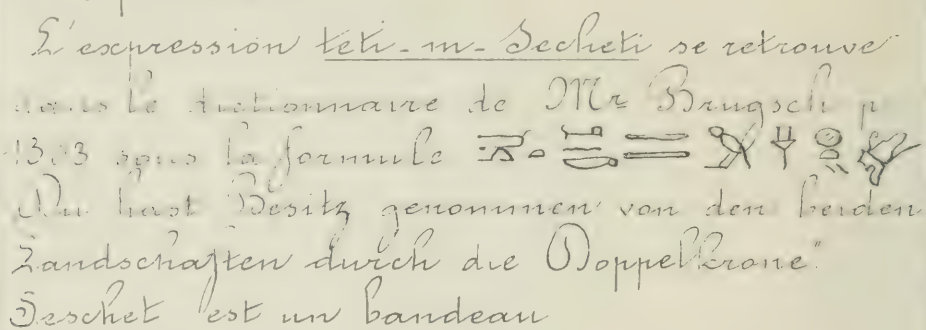 L'expression teti-m-Secheti se retrouve
dans le dictionnaire de Mr Brugsch p
1303 sous la formule
Du hast Besitz genommen von den beiden
Landschaften durch die Doppelkrone"
Seschet est un bandeau